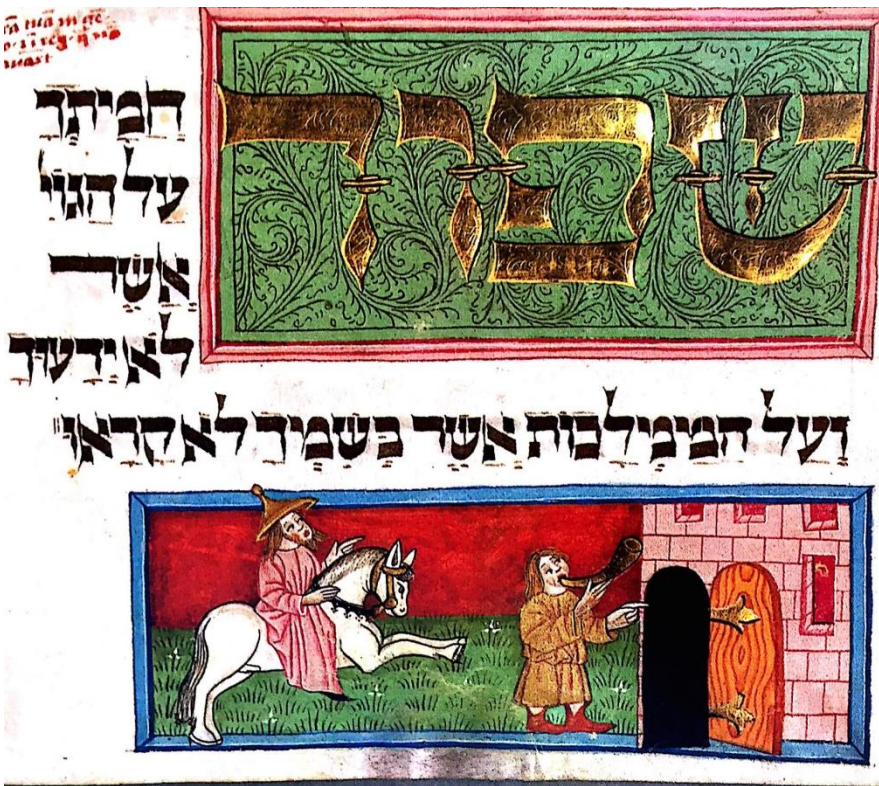 שפוך
חמיתך
על הגוי
אשר
לא ידעוך
ועל הממלכות אשר בשמך לא קראו